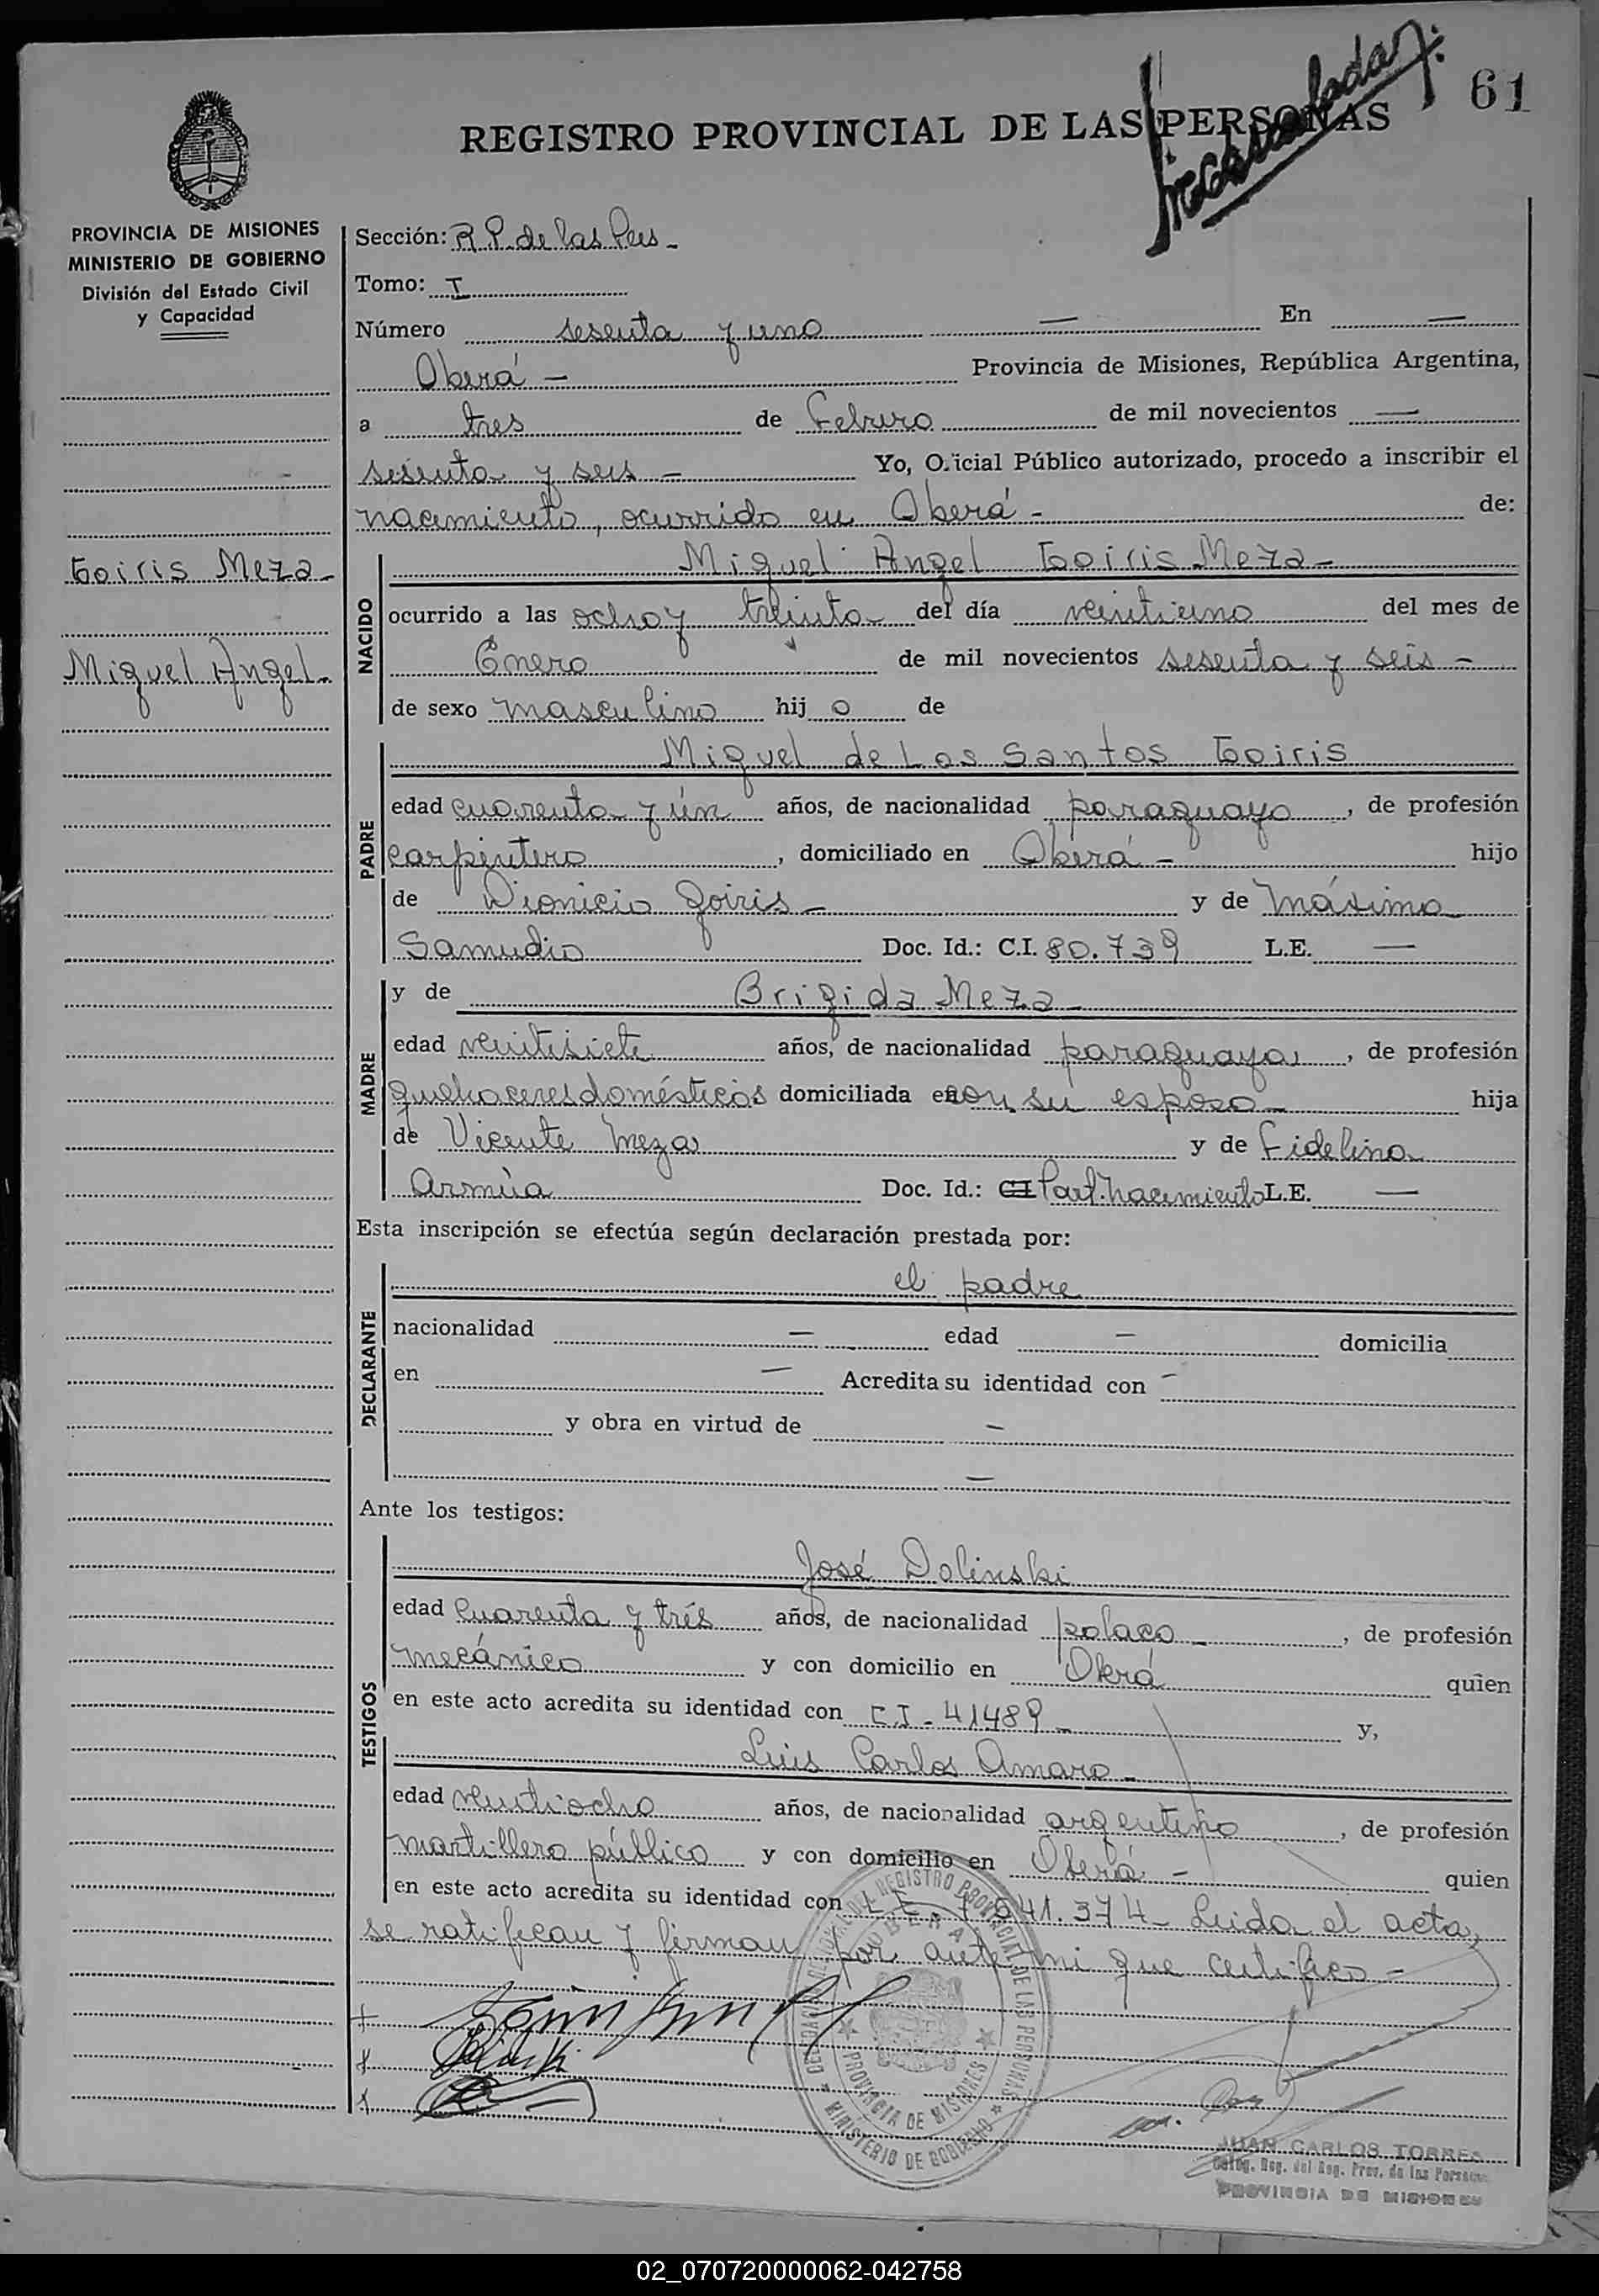 61
REGISTRO PROVINCIAL DE LAS PERSONAS
PROVINCIA DE MISIONES
MINISTERIO DE GOBIERNO
División del Estado Civil
y Capacidad
Goiris Meza -
Miguel Angel -
Sección: R. P. de las Pers -
Tomo: I
Número sesenta y uno — En —
Oberá - Provincia de Misiones, República Argentina,
a tres de Febrero de mil novecientos —
sesenta y seis - Yo, Oficial Público autorizado, procedo a inscribir el
nacimiento, ocurrido en Oberá - de:
NACIDO
Miguel Angel Goiris Meza -
ocurrido a las ocho y treinta del día veintiuno del mes de
Enero de mil novecientos sesenta y seis -
de sexo masculino hij o de
PADRE
Miguel de Los Santos Goiris
edad cuarenta y ún años, de nacionalidad paraguayo, de profesión
carpintero, domiciliado en Oberá - hijo
de Dionicio Goiris - y de Máxima
Samudio Doc. Id.: C.I. 80.739 L.E. —
MADRE
y de Brigida Meza -
edad veintisiete años, de nacionalidad paraguaya, de profesión
quehaceres domésticos domiciliada con su esposo - hija
de Vicente Meza y de Fidelina
Armúa Doc. Id.: CI Part. nacimiento L.E. —
Esta inscripción se efectúa según declaración prestada por:
DECLARANTE
el padre
nacionalidad — edad — domicilia
en — Acredita su identidad con -
y obra en virtud de —
—
Ante los testigos:
TESTIGOS
José Dolinski
edad cuarenta y trés años, de nacionalidad polaco -, de profesión
mecánico y con domicilio en Oberá quien
en este acto acredita su identidad con C.I - 41489 - y,
Luis Carlos Amaro -
edad veintiocho años, de nacionalidad argentino, de profesión
martillero público y con domicilio en Oberá - quien
en este acto acredita su identidad con L.E. 7.541.374 - Leida el acta,
se ratifican y firman por ante mi que certifico -
REGISTRO PROVINCIAL DE LAS PERSONAS
OBERA
PROVINCIA DE MISIONES
MINISTERIO DE GOBIERNO
JUAN CARLOS TORRES
Deleg. Reg. del Reg. Prov. de las Personas
PROVINCIA DE MISIONES
02_070720000062-042758